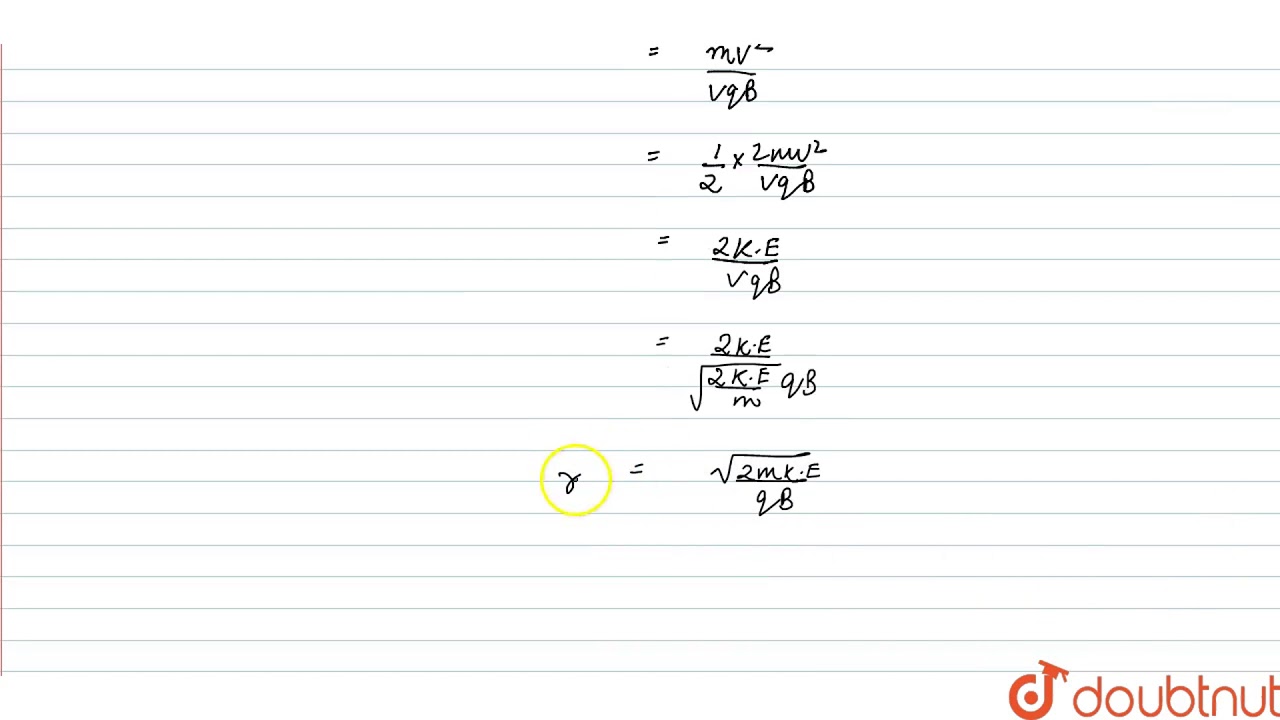 = mv² / vqB
= 1/2 × 2mv² / vqB
= 2K.E / vqB
= 2K.E / √(2K.E / m) qB
r = √2mK.E / qB
doubtnut